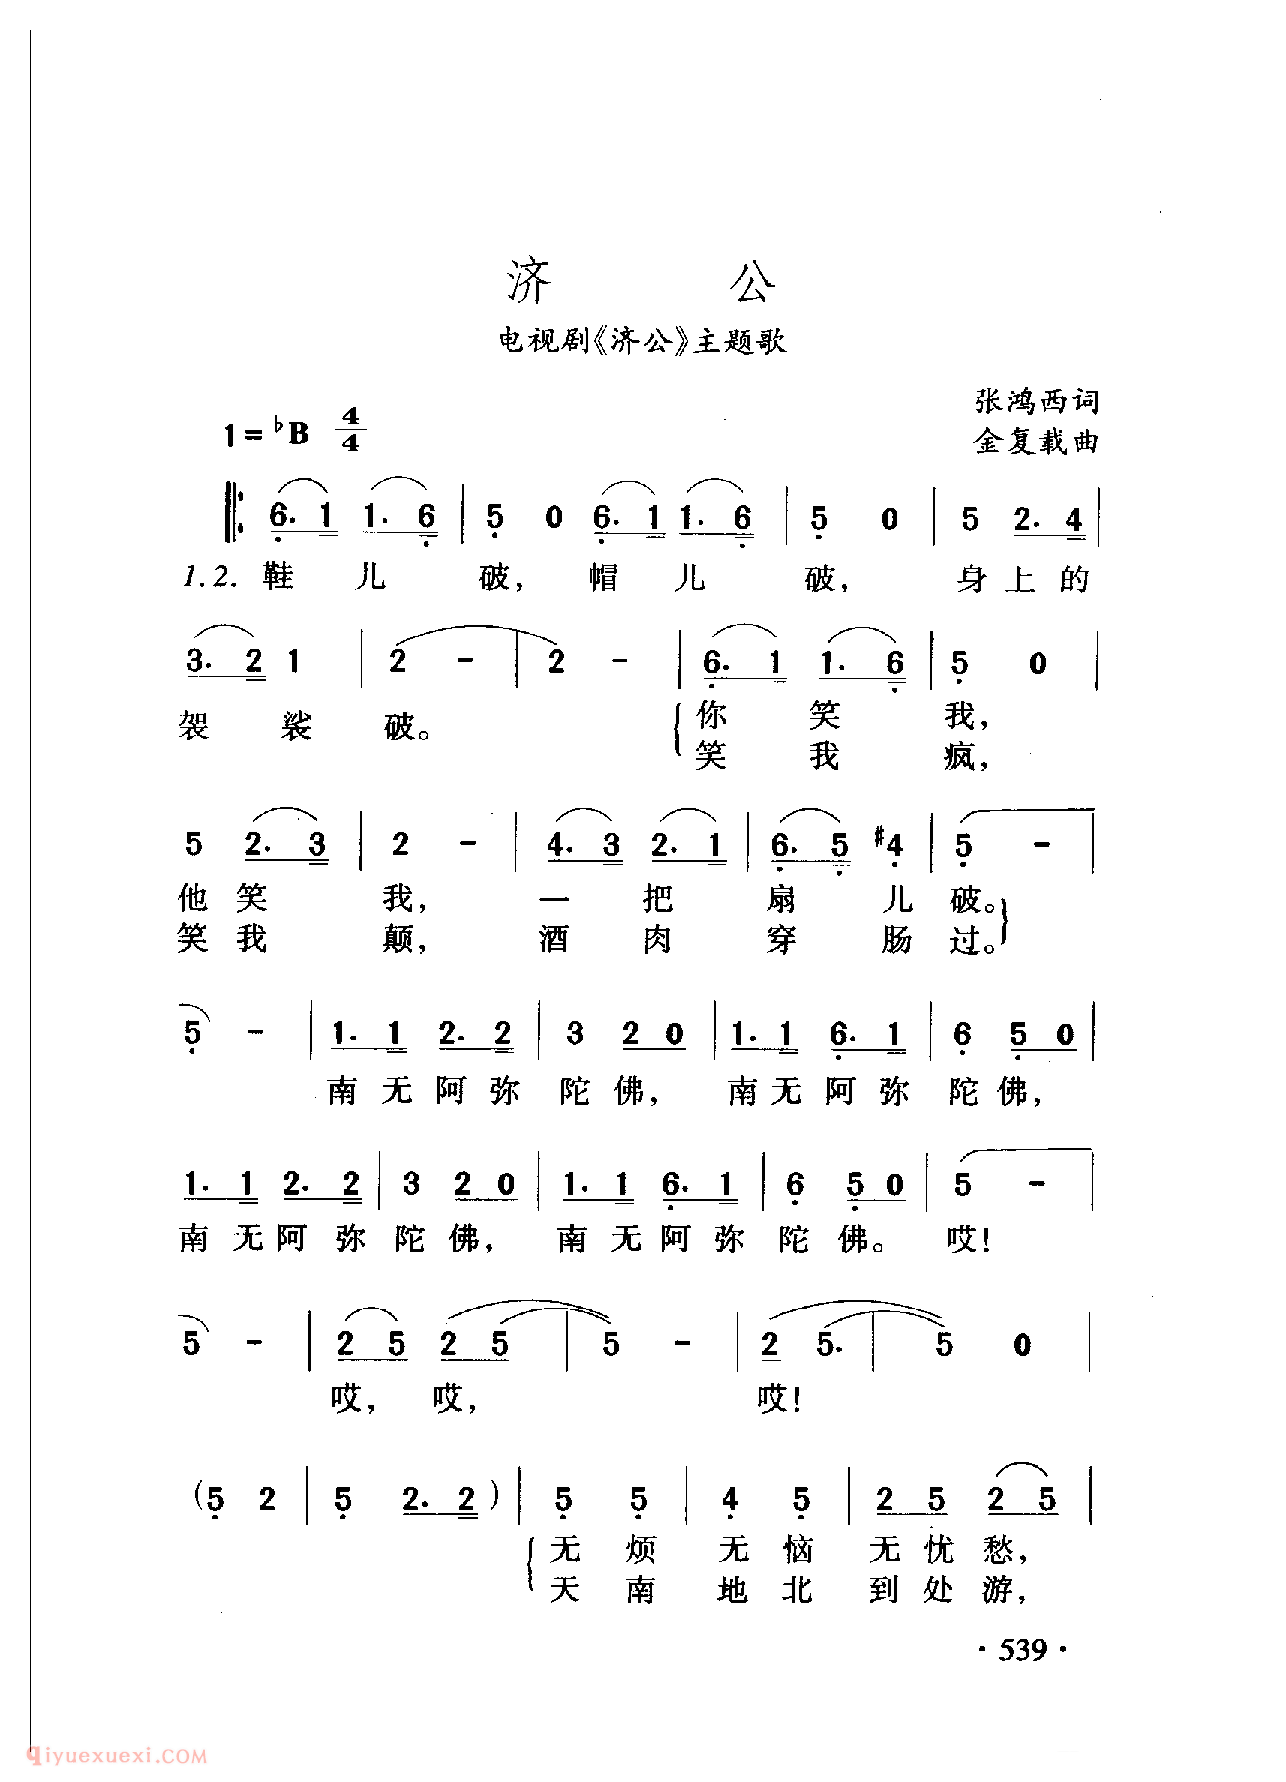 济 公
电视剧《济公》主题歌
张鸿西词
1=♭B 4/4
金复载曲
6. 1 1. 6 | 5 0 6. 1 1. 6 | 5 0 | 5 2. 4 |
1.2. 鞋 儿 破, 帽 儿 破, 身 上 的
3. 2 1 | 2 - | 2 - | 6. 1 1. 6 | 5 0 |
袈 裟 破。 你 笑 我,
笑 我 疯,
5 2. 3 | 2 - | 4. 3 2. 1 | 6. 5 #4 | 5 - |
他 笑 我, 一 把 扇 儿 破。
笑 我 颠, 酒 肉 穿 肠 过。
5 - | 1. 1 2. 2 | 3 2 0 | 1. 1 6. 1 | 6 5 0 |
南 无 阿 弥 陀 佛, 南 无 阿 弥 陀 佛,
1. 1 2. 2 | 3 2 0 | 1. 1 6. 1 | 6 5 0 | 5 - |
南 无 阿 弥 陀 佛, 南 无 阿 弥 陀 佛。 哎!
5 - | 2 5 2 5 | 5 - | 2 5. | 5 0 |
哎, 哎, 哎!
(5 2 | 5 2. 2) | 5 5 | 4 5 | 2 5 2 5 |
无 烦 无 恼 无 忧 愁,
天 南 地 北 到 处 游,
· 539 ·
qiyuexuexi.COM